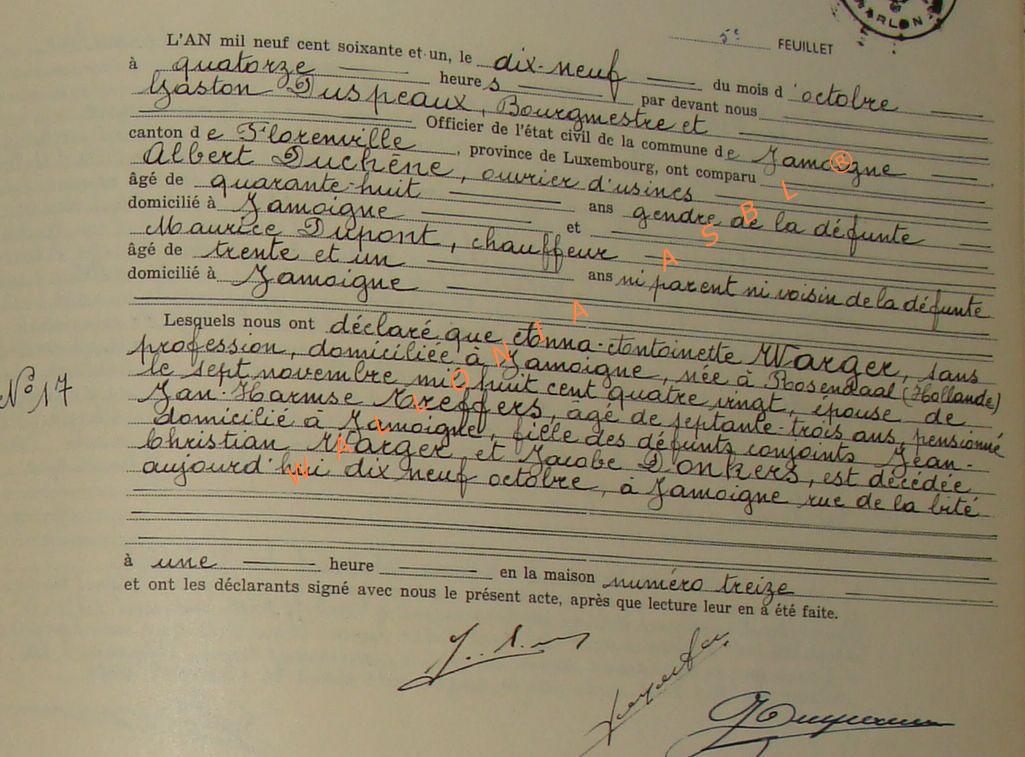 ARLON
5e FEUILLET
L'AN mil neuf cent soixante et un, le dix-neuf du mois d'octobre
à quatorze heures par devant nous
Gaston Duspeaux, Bourgmestre et
Officier de l'état civil de la commune de Jamoigne
canton de Florenville, province de Luxembourg, ont comparu
Albert Duchêne, ouvrier d'usines
âgé de quarante-huit ans gendre de la défunte
domicilié à Jamoigne et
Maurice Dupont, chauffeur
âgé de trente et un ans ni parent ni voisin de la défunte
domicilié à Jamoigne
Lesquels nous ont déclaré que Anna-Antoinette Warger, sans
profession, domiciliée à Jamoigne, née à Rosendaal (Hollande)
N° 17
le sept novembre mil huit cent quatre vingt, épouse de
Jan-Harmse Kreffers, âgé de septante-trois ans, pensionné
domicilié à Jamoigne, fille des défunts conjoints Jean-
Christian Warger et Jacobe Donkers, est décédée
aujourd'hui dix neuf octobre, à Jamoigne rue de la Cité
à une heure en la maison numéro treize
et ont les déclarants signé avec nous le présent acte, après que lecture leur en a été faite.
WALLONIA ASBL ®